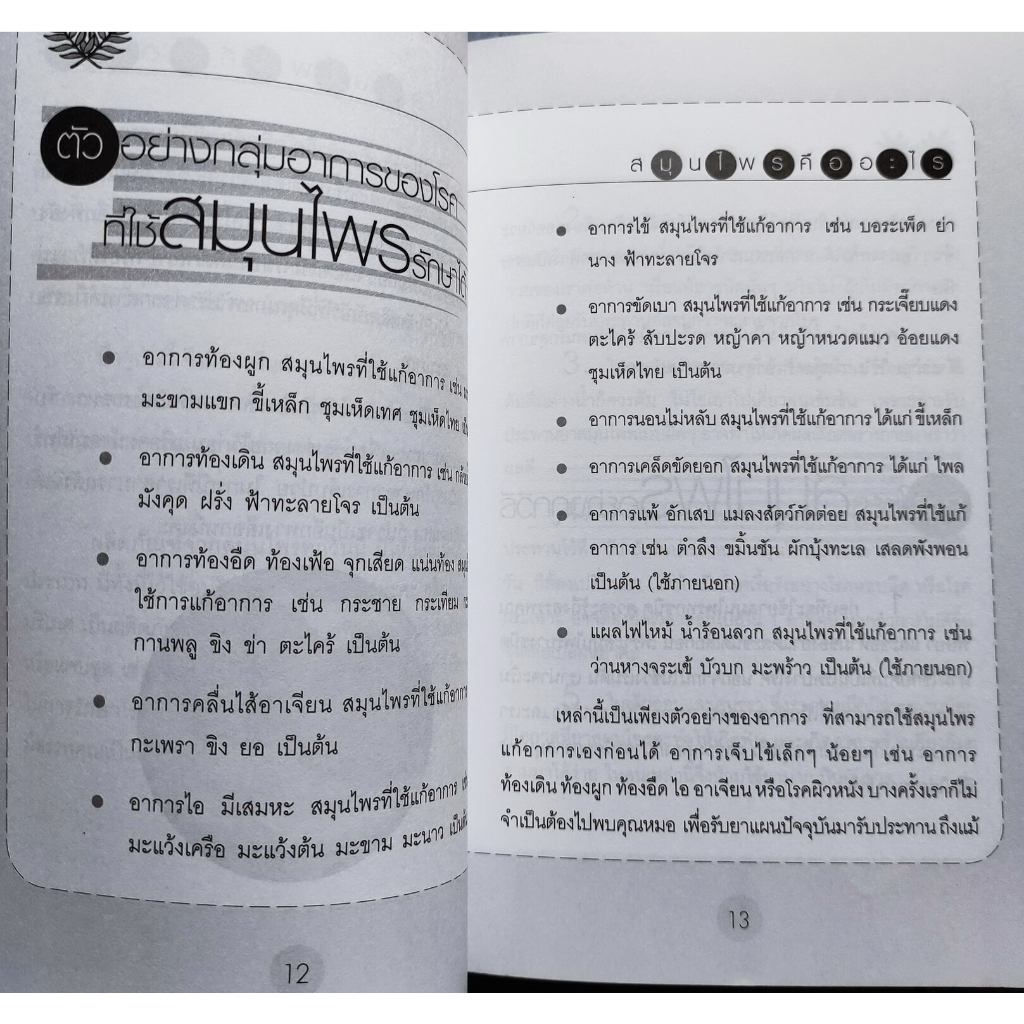 ตัวอย่างกลุ่มอาการของโรค
ที่ใช้สมุนไพรรักษาได้
• อาการท้องผูก สมุนไพรที่ใช้แก้อาการ เช่น
มะขามแขก ขี้เหล็ก ชุมเห็ดเทศ ชุมเห็ดไทย
• อาการท้องเดิน สมุนไพรที่ใช้แก้อาการ เช่น
มังคุด ฝรั่ง ฟ้าทะลายโจร เป็นต้น
• อาการท้องอืด ท้องเฟ้อ จุกเสียด แน่นท้อง
ใช้การแก้อาการ เช่น กระชาย กระเทียม
กานพลู ขิง ข่า ตะไคร้ เป็นต้น
• อาการคลื่นไส้อาเจียน สมุนไพรที่ใช้แก้อาการ
กะเพรา ขิง ยอ เป็นต้น
• อาการไอ มีเสมหะ สมุนไพรที่ใช้แก้อาการ
มะแว้งเครือ มะแว้งต้น มะขาม มะนาว เป็นต้น
12
สมุนไพรคืออะไร
• อาการไข้ สมุนไพรที่ใช้แก้อาการ เช่น บอระเพ็ด ย่า
นาง ฟ้าทะลายโจร
• อาการขัดเบา สมุนไพรที่ใช้แก้อาการ เช่น กระเจี๊ยบแดง
ตะไคร้ สับปะรด หญ้าคา หญ้าหนวดแมว อ้อยแดง
ชุมเห็ดไทย เป็นต้น
• อาการนอนไม่หลับ สมุนไพรที่ใช้แก้อาการ ได้แก่ ขี้เหล็ก
• อาการเคล็ดขัดยอก สมุนไพรที่ใช้แก้อาการ ได้แก่ ไพล
• อาการแพ้ อักเสบ แมลงสัตว์กัดต่อย สมุนไพรที่ใช้แก้
อาการ เช่น ตำลึง ขมิ้นชัน ผักบุ้งทะเล เสลดพังพอน
เป็นต้น (ใช้ภายนอก)
• แผลไฟไหม้ น้ำร้อนลวก สมุนไพรที่ใช้แก้อาการ เช่น
ว่านหางจระเข้ บัวบก มะพร้าว เป็นต้น (ใช้ภายนอก)
เหล่านี้เป็นเพียงตัวอย่างของอาการ ที่สามารถใช้สมุนไพร
แก้อาการเองก่อนได้ อาการเจ็บไข้เล็กๆ น้อยๆ เช่น อาการ
ท้องเดิน ท้องผูก ท้องอืด ไอ อาเจียน หรือโรคผิวหนัง บางครั้งเราก็ไม่
จำเป็นต้องไปพบคุณหมอ เพื่อรับยาแผนปัจจุบันมารับประทาน ถึงแม้
13